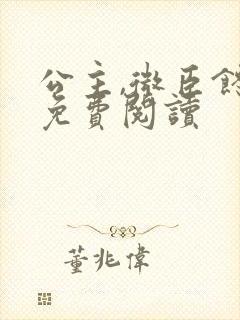 公主,微臣
免費閱讀
董兆偉